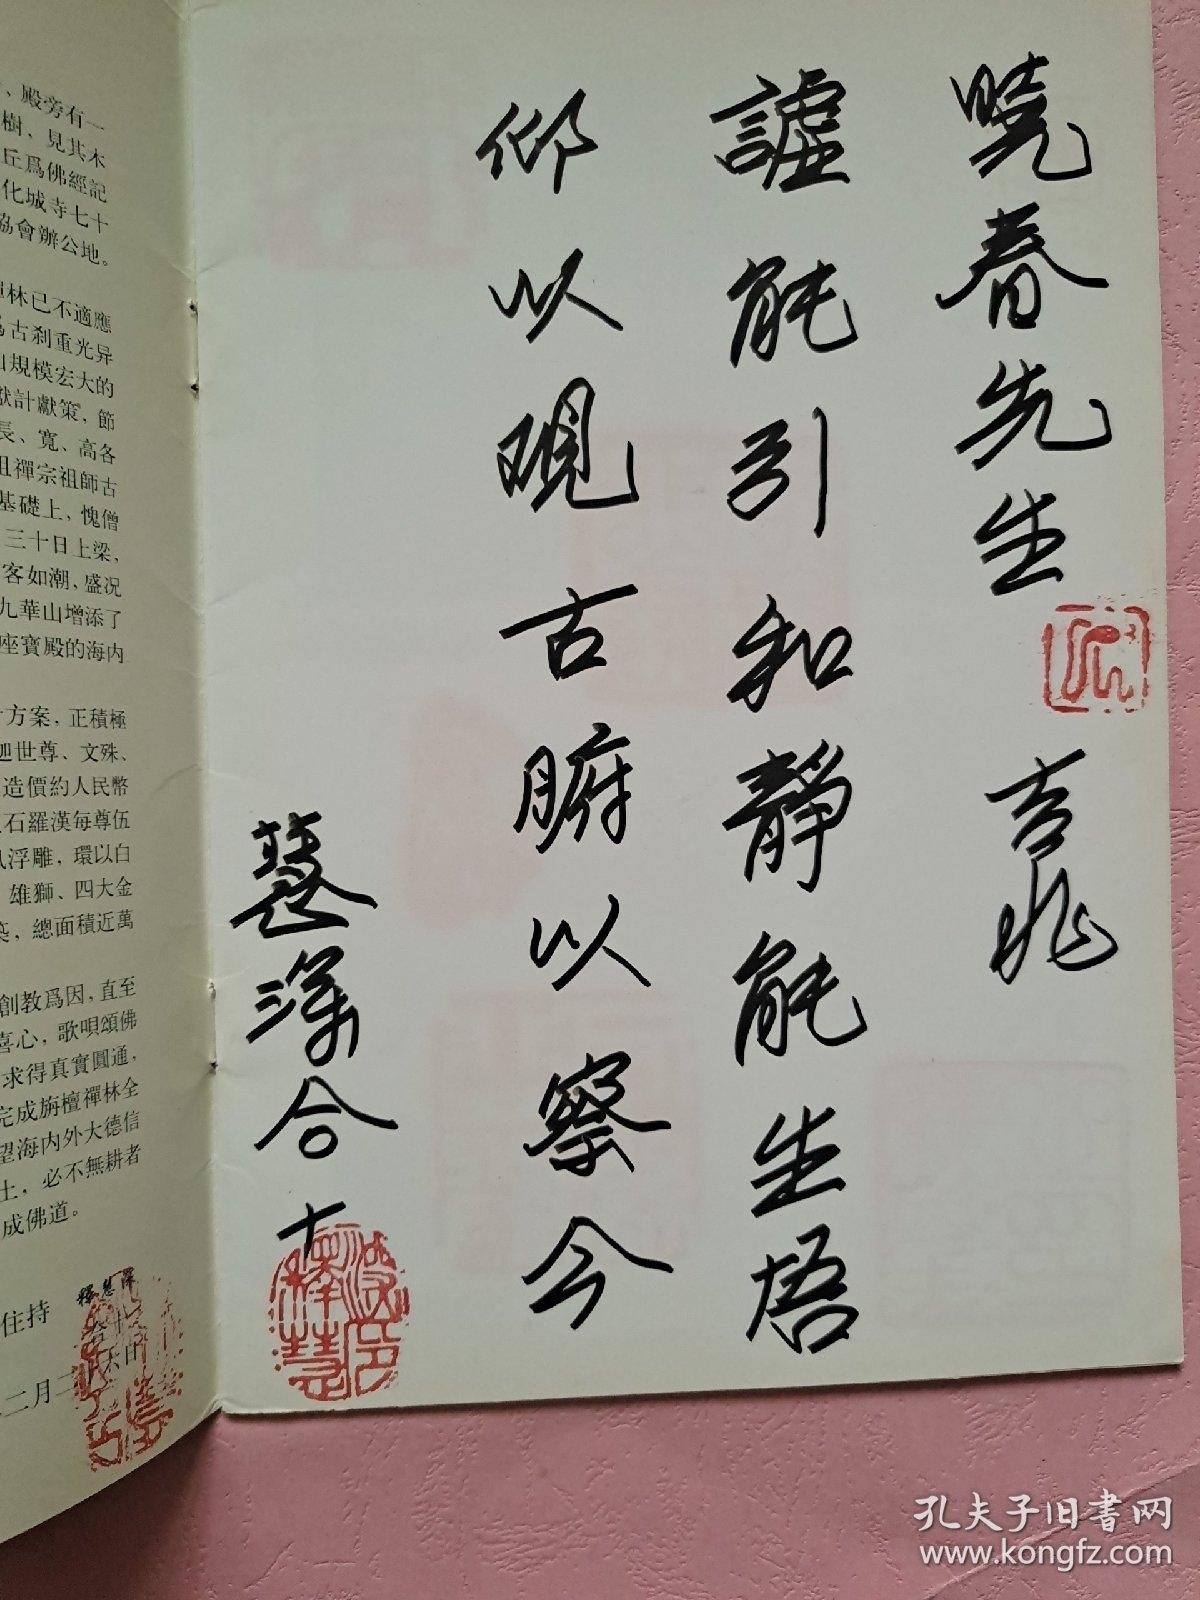 曉春先生 吉兆
謔能引和靜能生悟
仰以現古臍以察今
慧深合十
、殿旁有一
樹、見其木
丘爲佛經記
化城寺七十
協會辦公地。
林已不適應
古刹重光异
規模宏大的
獻計獻策,節
長、寬、高各
且禪宗祖師古
基礎上,愧僧
三十日上梁,
客如潮,盛况
九華山增添了
座寶殿的海内
方案,正積極
迦世尊、文殊、
造價約人民幣
石羅漢每尊伍
浮雕,環以白
雄獅、四大金
,總面積近萬
創教爲因,直至
喜心,歌唄頌佛
求得真實圓通,
完成旃檀禪林全
望海内外大德信
土,必不無耕者
成佛道。
住持 釋慧深
二月二十六日
孔夫子旧书网
www.kongfz.com